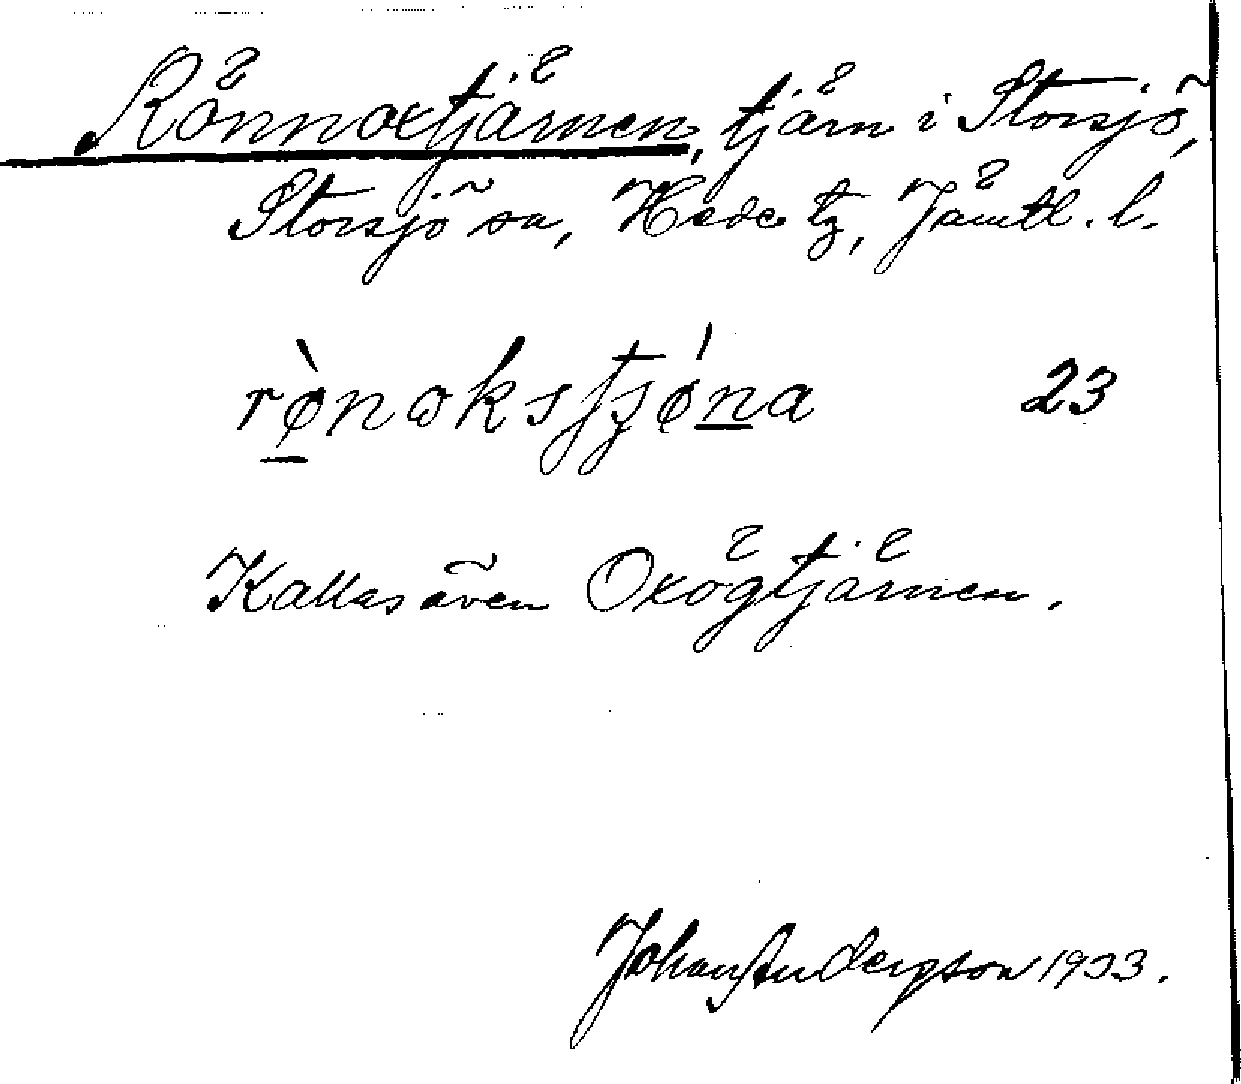 Rönnoxtjärnen, tjärn i Storsjö,
Storsjö sn, Hede tg, Jämtl. l.
23
Kallas även Oxögtjärnen.
Johan Andergson 1933.